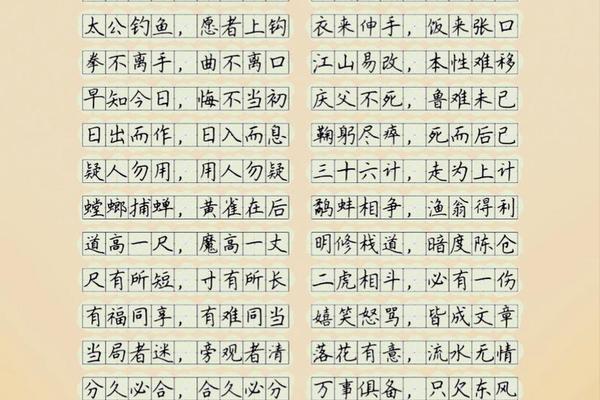 太公钓鱼，愿者上钩 衣来伸手，饭来张口
拳不离手，曲不离口 江山易改，本性难移
早知今日，悔不当初 庆父不死，鲁难未已
日出而作，日入而息 鞠躬尽瘁，死而后已
疑人勿用，用人勿疑 三十六计，走为上计
螳螂捕蝉，黄雀在后 鹬蚌相争，渔翁得利
道高一尺，魔高一丈 明修栈道，暗度陈仓
尺有所短，寸有所长 二虎相斗，必有一伤
有福同享，有难同当 嬉笑怒骂，皆成文章
当局者迷，旁观者清 落花有意，流水无情
分久必合，合久必分 万事俱备，只欠东风